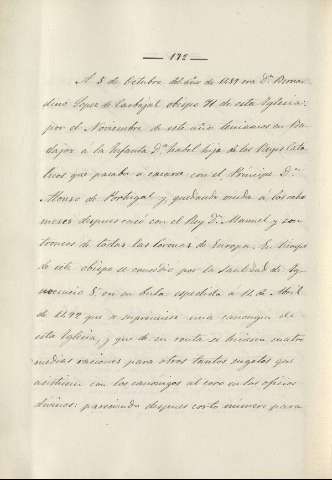 — 172 —
A 8 de Octubre del año de 1489 era Dn. Bernar
dino Lopez de Carbajal obispo 71 de esta Iglesia:
por el Noviembre de este año teniamos en Ba
dajoz á la Infanta Dª. Isabel hija de los Reyes Cató
licos que pasaba á casarse con el Principe Dn.
Alonso de Portugal y quedando viuda á los ocho
meses despues casó con el Rey Dn. Manuel y son
troncos de todas las coronas de Europa. En tiempo
de este obispo se concedió por la Santidad de Yn
nocencio 8º en su bula espedida á 11 de Abril
de 1492 que se suprimiese una canongia de
esta Iglesia, y que de su renta se hiciesen cuatro
medias raciones para otros tantos sugetos que
asistiesen con los canonigos al coro en los oficios
divinos: pareciendo despues corto número para